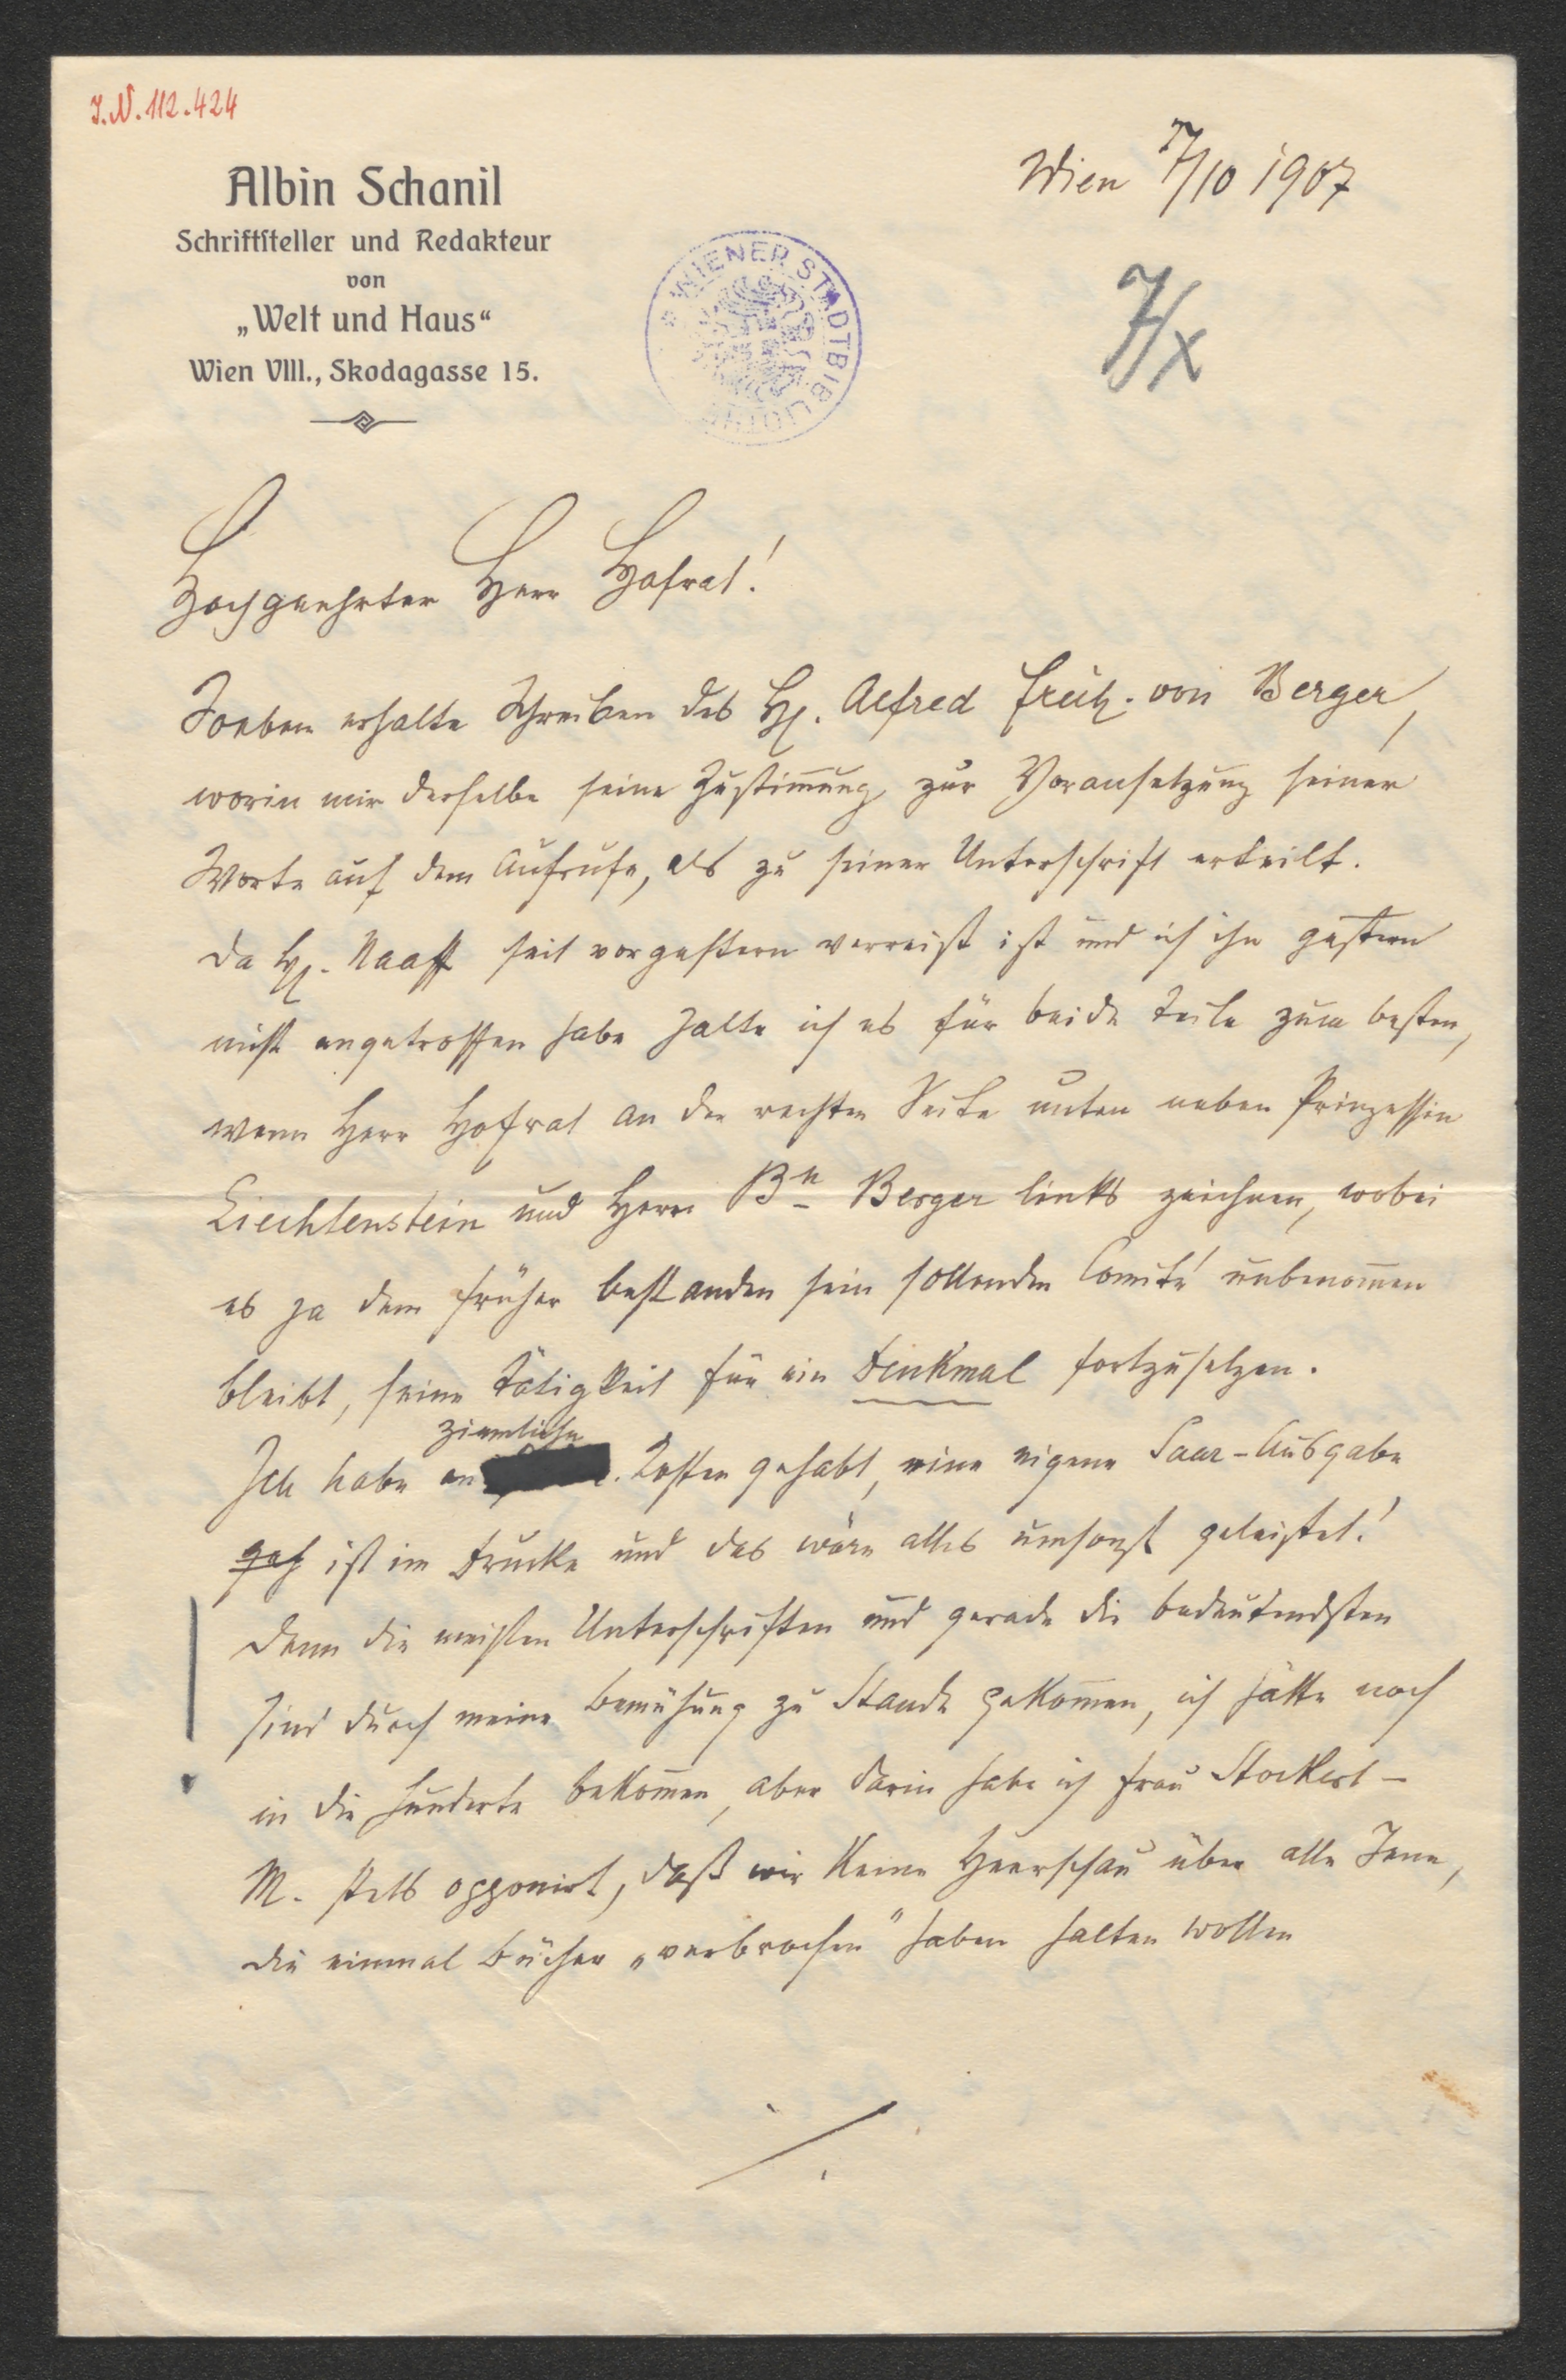 J.N. 112.424
Albin Schanil
Schriftsteller und Redakteur
von
„Welt und Haus“
Wien VIII., Skodagasse 15.
WIENER STADTBIBLIOTHEK
Wien 7/10 1907
7/X
Hochgeehrter Herr Hofrat!
Soeben erhalte Schreiben des H. Alfred Freih. von Berger,
worin mir derselbe seine Zustimmung zur Voransetzung seiner
Worte auf dem Aufrufe, als zu seiner Unterschrift erteilt.
Da H. Naaff seit vorgestern verreist ist und ich ihn gestern
nicht angetroffen habe halte ich es für beide Teile zum besten,
wenn Herr Hofrat an der rechten Seite unten neben Prinzessin
Liechtenstein und Herrn Bn Berger links zeichnen, wobei
es ja dem früher bestanden sein sollenden Comité unbenommen
bleibt, seine Tätigkeit für ein Denkmal fortzusetzen.
ziemliche
Ich habe an Kosten gehabt, eine eigene Saar-Ausgabe
ist im Drucke und das wäre alles umsonst geleistet!
Denn die meisten Unterschriften und gerade die bedeutendsten
sind durch meine Bemühung zu Stande gekommen, ich hätte noch
in die Hunderte bekommen, aber darin habe ich Frau Stockert-
M. stets opponirt, daß wir keine Heerschau über alle Jene,
die einmal Bücher „verbrochen“ haben halten wollen
./.